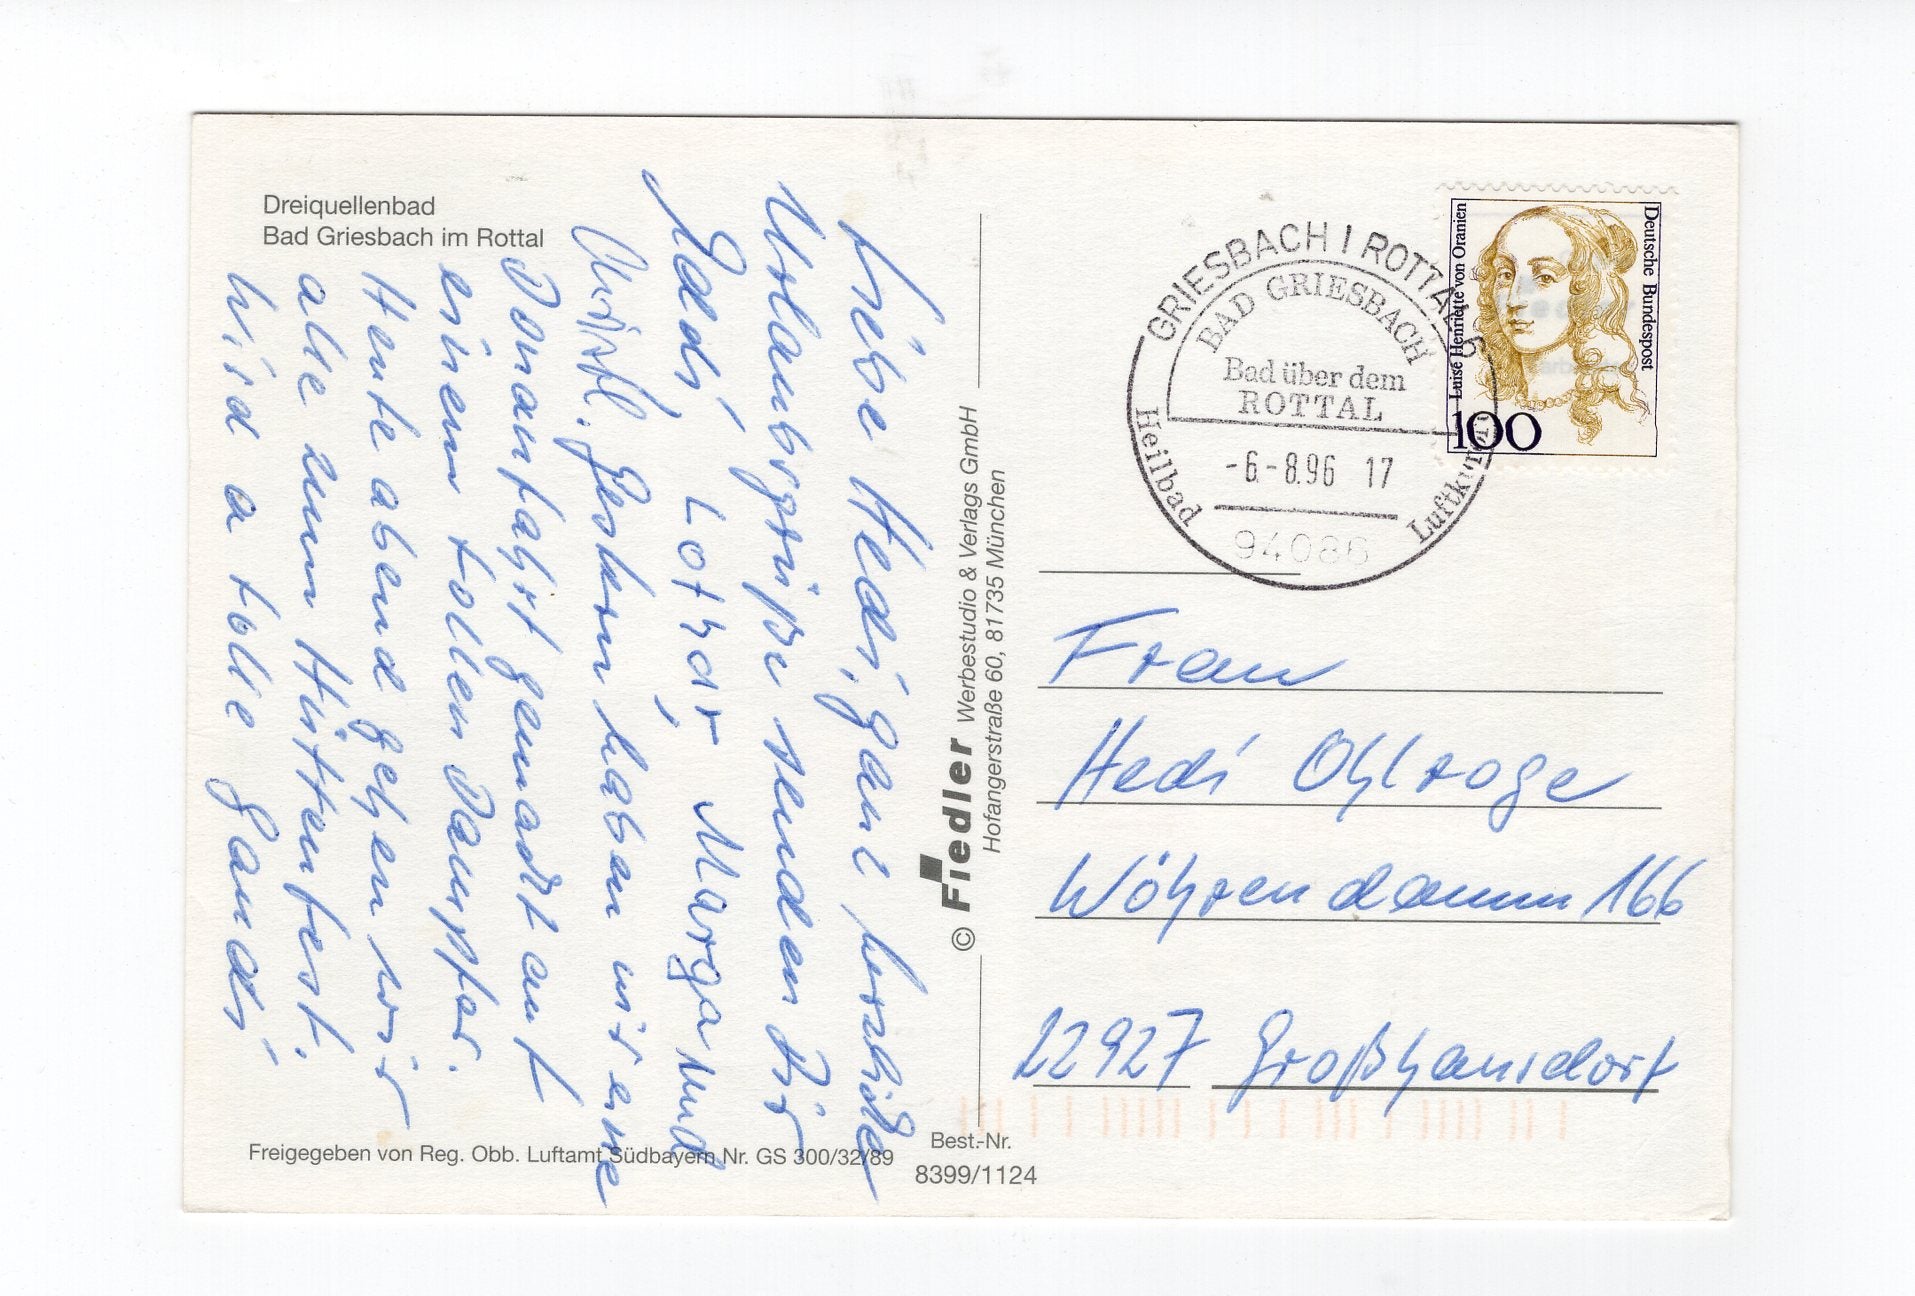 Dreiquellenbad
Bad Griesbach im Rottal
Liebe Hedi, ganz herzliche
Urlaubsgrüße senden Dir
Lothar, Marga und
Gestern haben wir eine
Donaufahrt gemacht auf
einem tollen Dampfer.
Heute abend gehen wir
alle zum Hüttenfest.
Wird a tolle Gaudi
Freigegeben von Reg. Obb. Luftamt Südbayern Nr. GS 300/32/89
Best.-Nr.
8399/1124
© Fiedler Werbestudio & Verlags GmbH
Hofangerstraße 60, 81735 München
GRIESBACH I ROTTAL
BAD GRIESBACH
Bad über dem
ROTTAL
-6.-8.96 17
94086
Heilbad
Luftkurort
Deutsche Bundespost
Luise Henriette von Oranien
100
Frau
Hedi Ohlroge
Wöhrendamm 166
22927 Großhansdorf